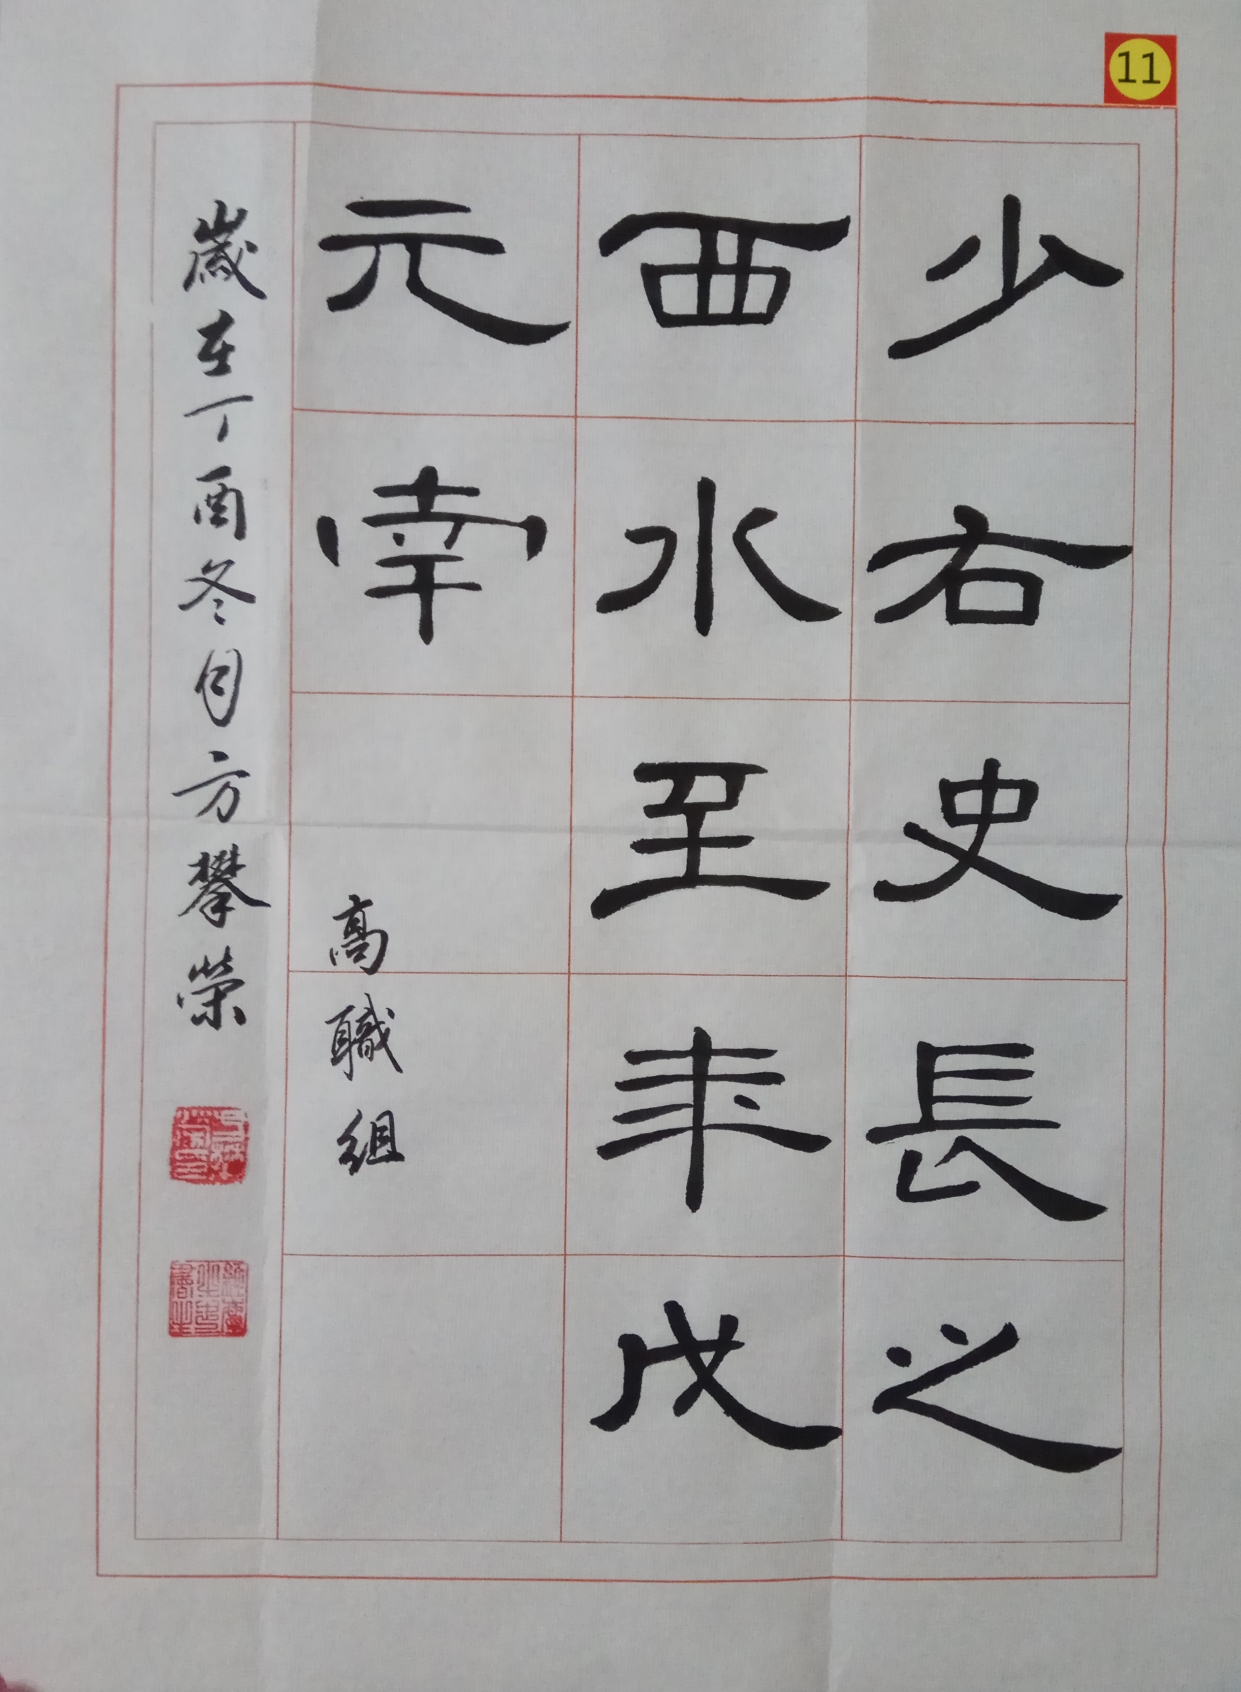 11
少右史長之
西水至年戊
元幸
高職組
歲在丁酉冬月方攀榮